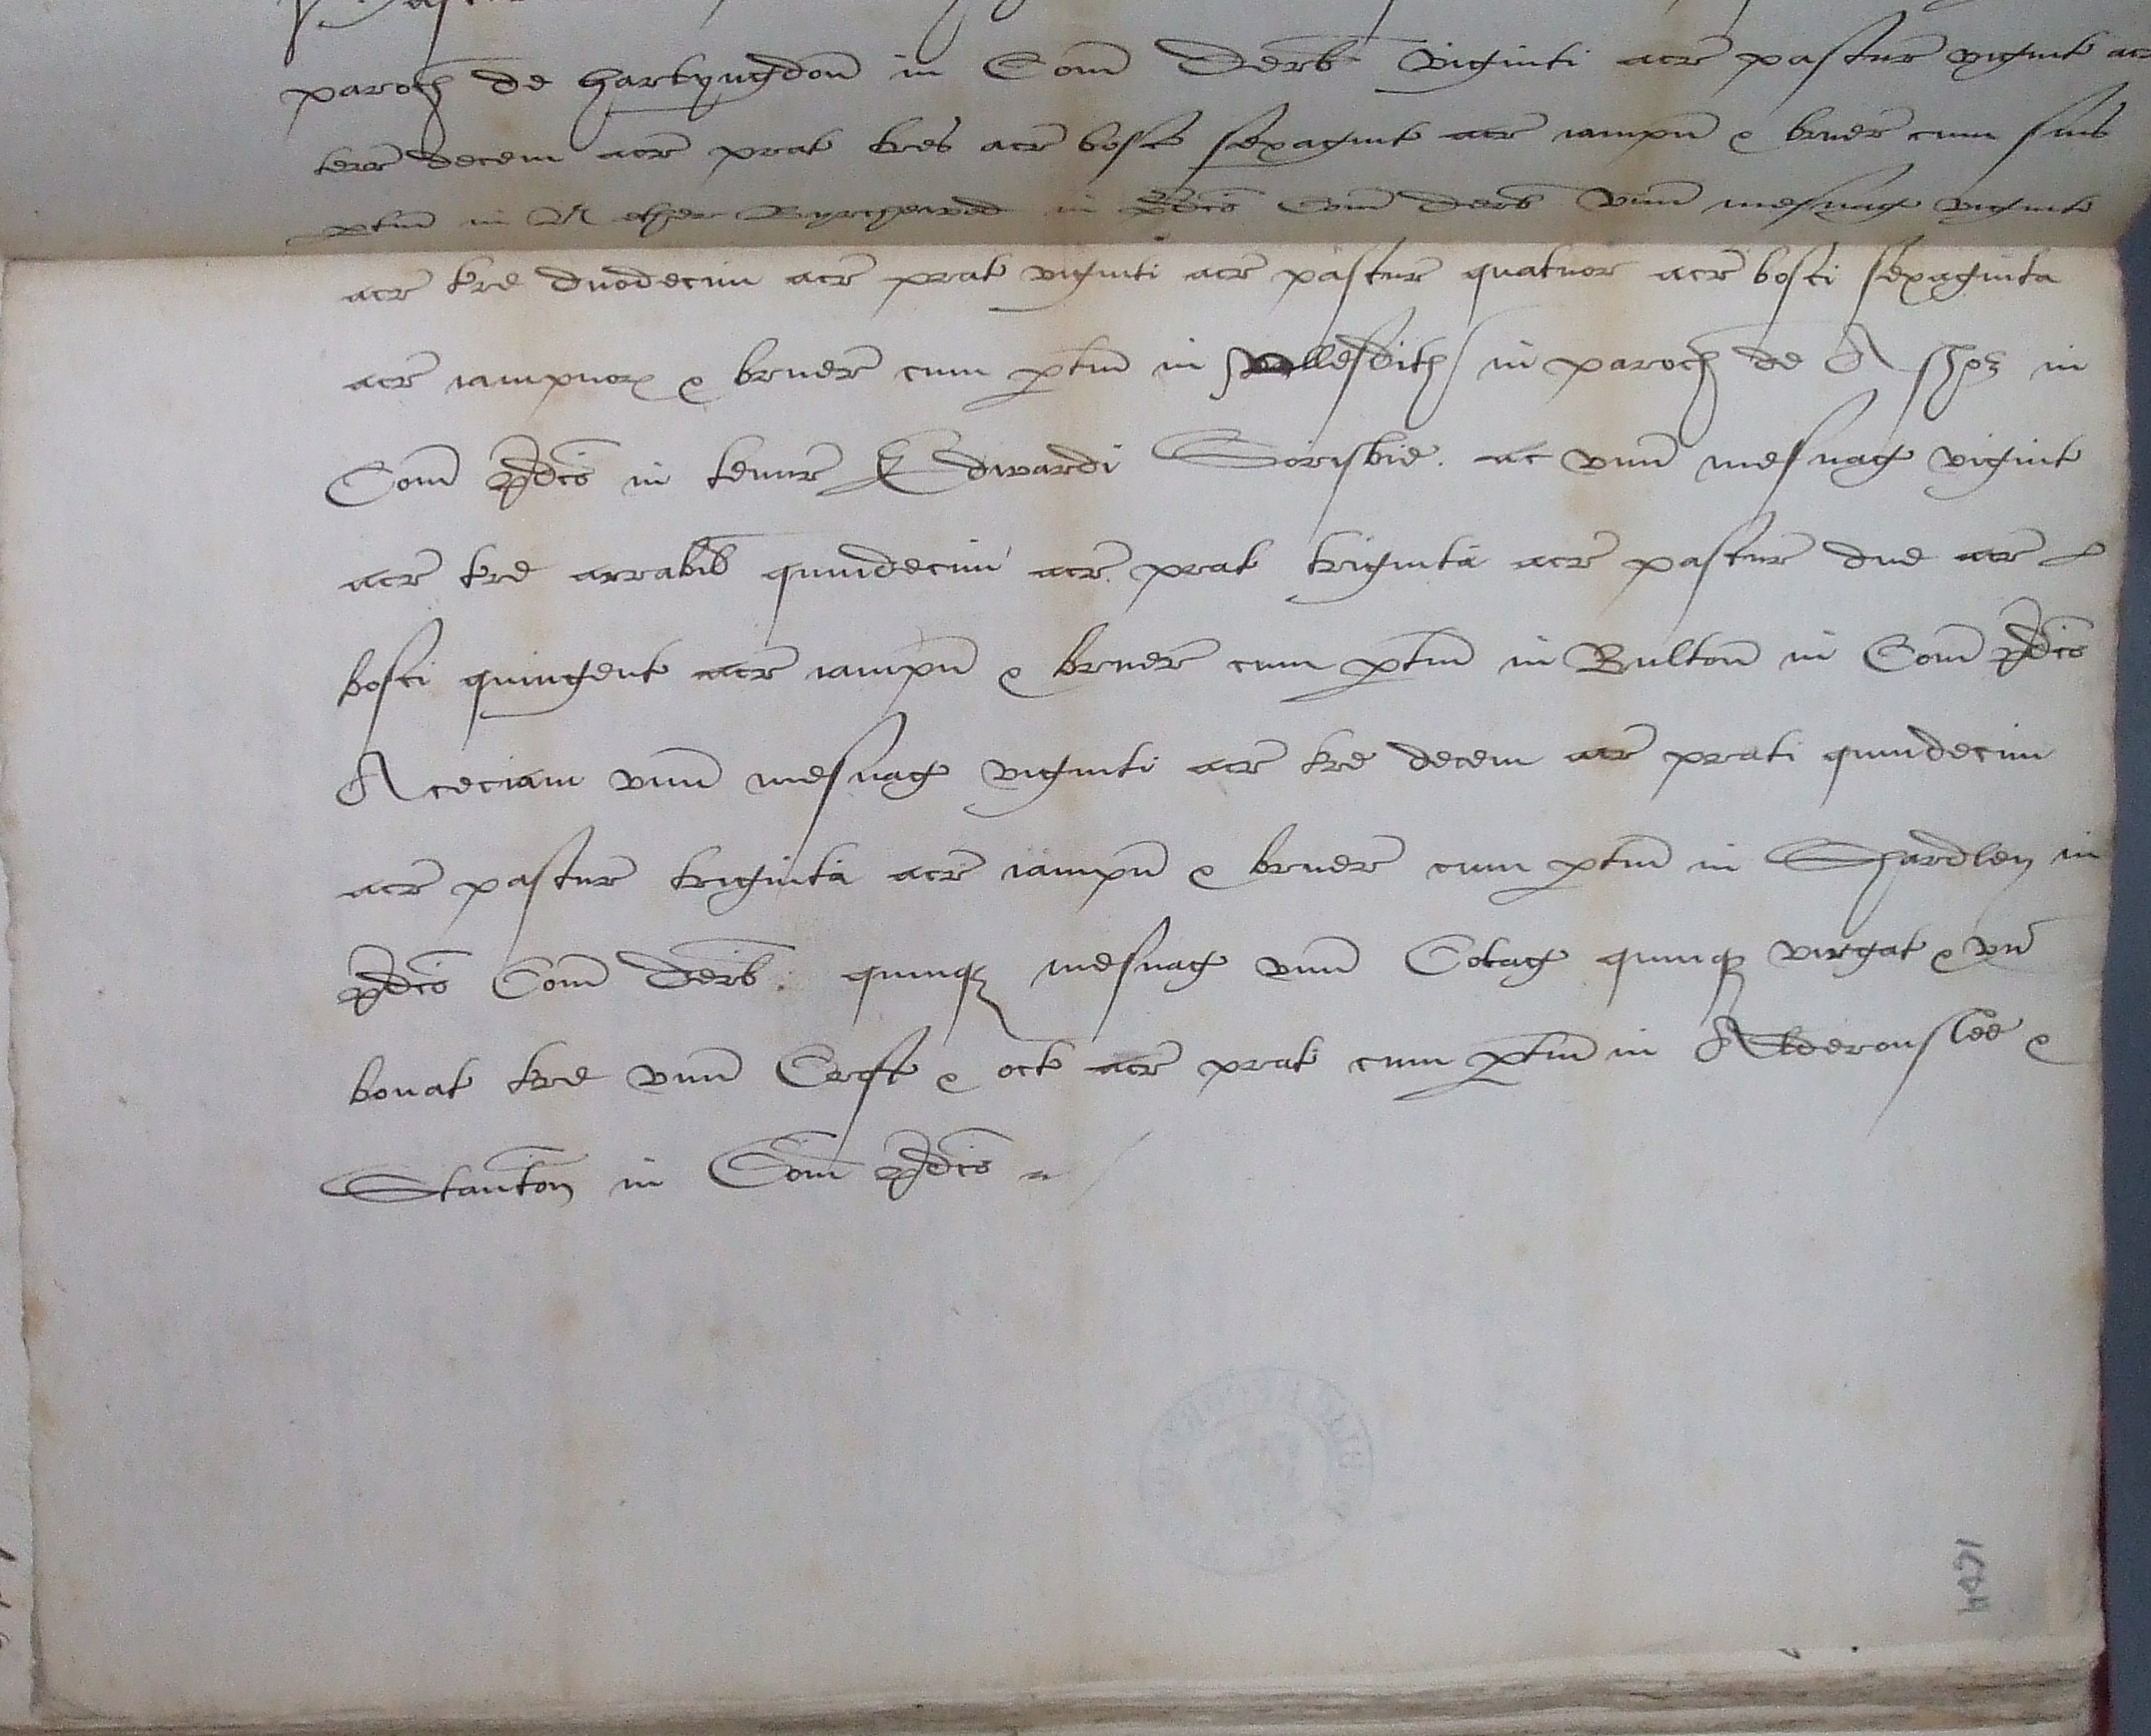 paroch de Hartyngdon in Com Derb viginti acr pastur vigint acr
terr decem acr prat tres acr bosci sexagint acr iampn & bruer cum suis
ptin in Nether Byrchewod in pdco Com Derb unu mesuag viginti
acr tre duodecim acr prat viginti acr pastur quatuor acr bosci sexaginta
acr iampnor & bruer cum ptin in in paroch de Asshor in
Com pdco in tenur Edwardi Sorisbie. ac unu mesuag vigint
acr tre arrabil quindecim acr prat triginta acr pastur due acr
bosci quingent acr iampn & bruer cum ptin in Bulton in Com pdco
Aceciam unu mesuag viginti acr tre decem acr prati quindecim
acr pastur triginta acr iampn & bruer cum ptin in Shardley in
pdco Com Derb. quinqz mesuag unu Cotag quinqz virgat & un
bovat tre unu Croft & oct acr prat cum ptin in Alderonslee &
Stanton in Com pdco
1644